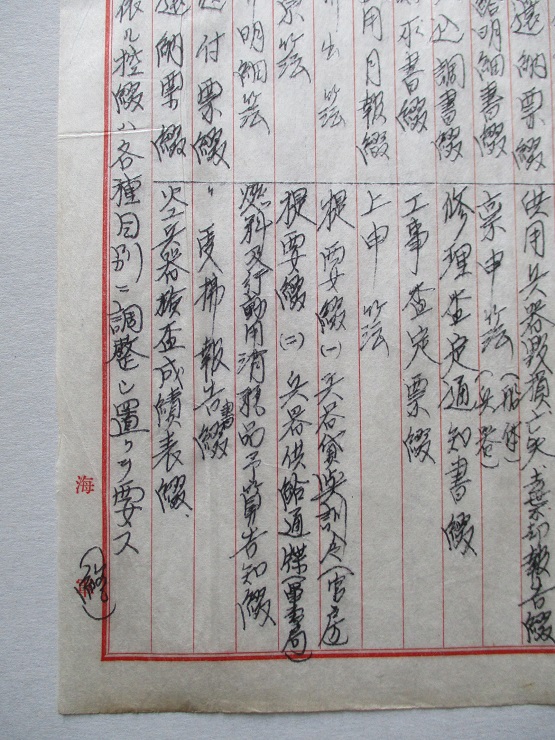 還納票綴
供用兵器毀損亡失報告綴
明細書綴
稟申簿(船体)(兵器)
込調書綴
修理査定通知書綴
示書綴
工事査定票綴
用月報綴
上申簿
出簿
提要綴(一) 兵器貸与訓令(官房)
簿
提要綴(二) 兵器供給通牒(軍需局)
明細簿
燃料及行動用消耗品予算告知綴
付票綴
〃受払報告書綴
還納票綴
火工兵器検査成績表綴
依ル控綴ハ各種目別ニ調整シ置クヲ要ス
(終)
海